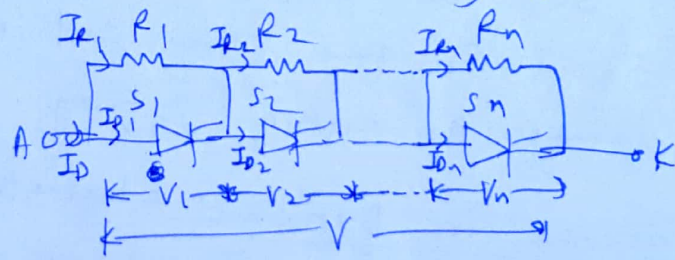 I_R1 R1 I_R2 R2 I_Rn Rn
S1 S2 Sn
A I_D I_D1 I_D2 I_Dn K
V1 V2 Vn
V